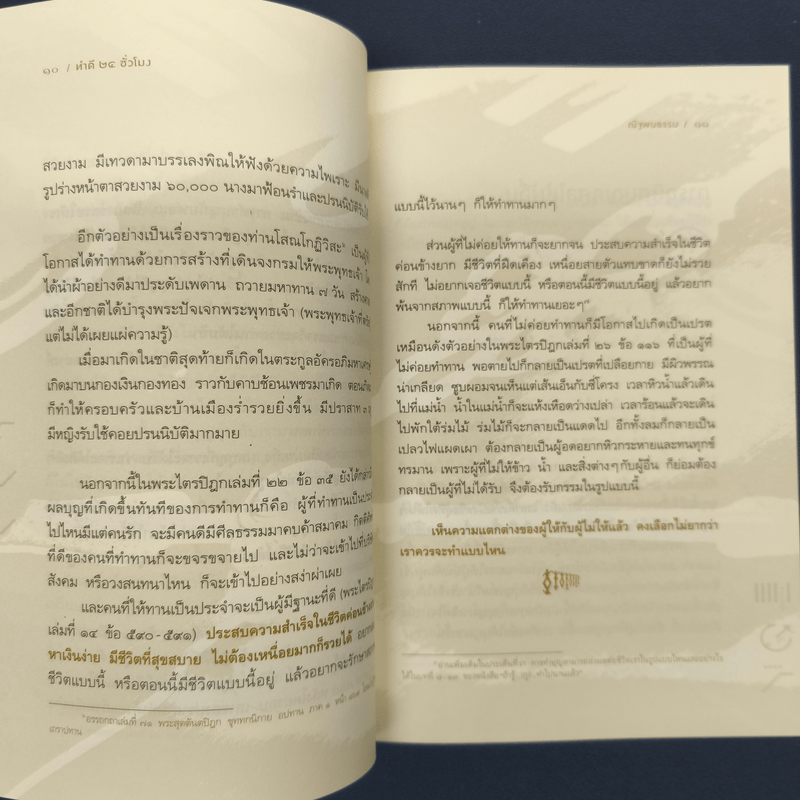 ๑๐ / ทำดี ๒๔ ชั่วโมง
สวยงาม มีเทวดามาบรรเลงพิณให้ฟังด้วยความไพเราะ
รูปร่างหน้าตาสวยงาม ๖๐,๐๐๐ นางมาฟ้อนรำและปรนนิบัติ
อีกตัวอย่างเป็นเรื่องราวของท่านโสณโกฏิวิสะ*
โอกาสได้ทำทานด้วยการสร้างที่เดินจงกรมให้พระพุทธเจ้า
ได้นำผ้าอย่างดีมาประดับเพดาน ถวายมหาทาน ๗ วัน
และอีกชาติได้บำรุงพระปัจเจกพระพุทธเจ้า
แต่ไม่ได้เผยแผ่ความรู้)
เมื่อมาเกิดในชาติสุดท้ายก็เกิดในตระกูลอัครอภิมหา
เกิดมาบนกองเงินกองทอง ราวกับคาบช้อนเพชรมาเกิด
ก็ทำให้ครอบครัวและบ้านเมืองร่ำรวยยิ่งขึ้น มีปราสาท
มีหญิงรับใช้คอยปรนนิบัติมากมาย
นอกจากนี้ในพระไตรปิฎกเล่มที่ ๒๒ ข้อ ๓๕
ผลบุญที่เกิดขึ้นทันทีของการทำทานก็คือ ผู้ที่ทำทานเป็น
ไปไหนมีแต่คนรัก จะมีคนดีมีศีลธรรมมาคบค้าสมาคม
ที่ดีของคนที่ทำทานก็จะขจรขจายไป และไม่ว่าจะเข้าไป
สังคม หรือวงสนทนาไหน ก็จะเข้าไปอย่างสง่าผ่าเผย
และคนที่ให้ทานเป็นประจำจะเป็นผู้มีฐานะที่ดี
เล่มที่ ๑๔ ข้อ ๕๙๐-๕๙๑) ประสบความสำเร็จในชีวิต
หาเงินง่าย มีชีวิตที่สุขสบาย ไม่ต้องเหนื่อยมากก็รวยได้
ชีวิตแบบนี้ หรือตอนนี้มีชีวิตแบบนี้อยู่ แล้วอยากจะ
*อรรถกถาเล่มที่ ๗๑ พระสุตตันตปิฎก ขุททกนิกาย อปทาน ภาค ๑
แบบนี้ไว้นานๆ ก็ให้ทำทานมากๆ
ส่วนผู้ที่ไม่ค่อยให้ทานก็จะยากจน ประสบความสำเร็จในชีวิต
ค่อนข้างยาก มีชีวิตที่ฝืดเคือง เหนื่อยสายตัวแทบขาดก็ยังไม่รวย
สักที ไม่อยากเจอชีวิตแบบนี้ หรือตอนนี้มีชีวิตแบบนี้อยู่ แล้วอยาก
พ้นจากสภาพแบบนี้ ก็ให้ทำทานเยอะๆ*
นอกจากนี้ คนที่ไม่ค่อยทำทานก็มีโอกาสไปเกิดเป็นเปรต
เหมือนดังตัวอย่างในพระไตรปิฎกเล่มที่ ๒๖ ข้อ ๑๑๖ ที่เป็นผู้ที่
ไม่ค่อยทำทาน พอตายไปก็กลายเป็นเปรตที่เปลือยกาย มีผิวพรรณ
น่าเกลียด ซูบผอมจนเห็นแต่เส้นเอ็นกับซี่โครง เวลาหิวน้ำแล้วเดิน
ไปที่แม่น้ำ น้ำในแม่น้ำก็จะแห้งเหือดว่างเปล่า เวลาร้อนแล้วจะเดิน
ไปพักใต้ร่มไม้ ร่มไม้ก็จะกลายเป็นแดดไป อีกทั้งลมก็กลายเป็น
เปลวไฟแผดเผา ต้องกลายเป็นผู้อดอยากหิวกระหายและทนทุกข์
ทรมาน เพราะผู้ที่ไม่ให้ข้าว น้ำ และสิ่งต่างๆกับผู้อื่น ก็ย่อมต้อง
กลายเป็นผู้ที่ไม่ได้รับ จึงต้องรับกรรมในรูปแบบนี้
เห็นความแตกต่างของผู้ให้กับผู้ไม่ให้แล้ว คงเลือกไม่ยากว่า
เราควรจะทำแบบไหน